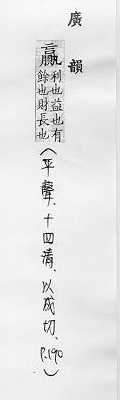 廣韻
贏利也益也有
餘也財長也
(平聲、十四清、以成切、P.190)